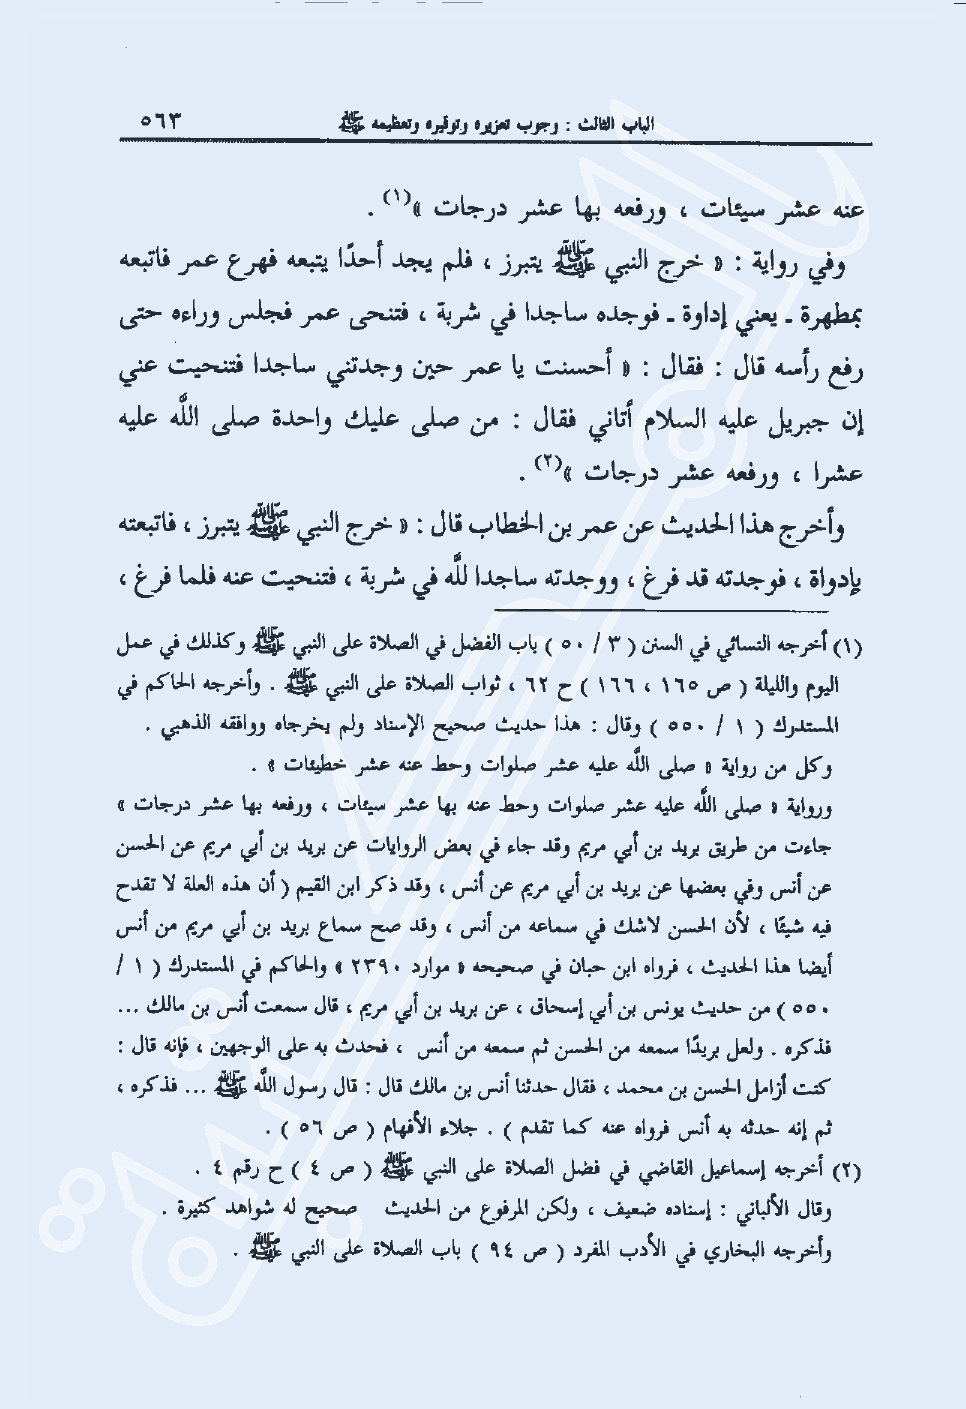 الباب الثالث : وجوب تعزيره وتوقيره وتعظيمه ﷺ ٥٦٣
عنه عشر سيئات ، ورفعه بها عشر درجات »(١) .
وفي رواية : « خرج النبي ﷺ يتبرز ، فلم يجد أحدًا يتبعه فهرع عمر فاتبعه
بمطهرة ـ يعني إداوة ـ فوجده ساجدا في شربة ، فتنحى عمر فجلس وراءه حتى
رفع رأسه قال : فقال : « أحسنت يا عمر حين وجدتني ساجدا فتنحيت عني
إن جبريل عليه السلام أتاني فقال : من صلى عليك واحدة صلى اللَّه عليه
عشرا ، ورفعه عشر درجات »(٢) .
وأخرج هذا الحديث عن عمر بن الخطاب قال : « خرج النبي ﷺ يتبرز ، فاتبعته
بإدواة ، فوجدته قد فرغ ، ووجدته ساجدا للَّه في شربة ، فتنحيت عنه فلما فرغ ،
(١) أخرجه النسائي في السنن ( ٣ / ٥٠ ) باب الفضل في الصلاة على النبي ﷺ وكذلك في عمل
اليوم والليلة ( ص ١٦٥ ، ١٦٦ ) ح ٦٢ ، ثواب الصلاة على النبي ﷺ . وأخرجه الحاكم في
المستدرك ( ١ / ٥٥٠ ) وقال : هذا حديث صحيح الإسناد ولم يخرجاه ووافقه الذهبي .
وكل من رواية « صلى اللَّه عليه عشر صلوات وحط عنه عشر خطيئات » .
ورواية « صلى اللَّه عليه عشر صلوات وحط عنه بها عشر سيئات ، ورفعه بها عشر درجات »
جاءت من طريق بريد بن أبي مريم وقد جاء في بعض الروايات عن بريد بن أبي مريم عن الحسن
عن أنس وفي بعضها عن بريد بن أبي مريم عن أنس ، وقد ذكر ابن القيم ( أن هذه العلة لا تقدح
فيه شيئًا ، لأن الحسن لاشك في سماعه من أنس ، وقد صح سماع بريد بن أبي مريم من أنس
أيضا هذا الحديث ، فرواه ابن حبان في صحيحه « موارد ٢٣٩٠ » والحاكم في المستدرك ( ١ /
٥٥٠ ) من حديث يونس بن أبي إسحاق ، عن بريد بن أبي مريم ، قال سمعت أنس بن مالك ...
فذكره . ولعل بريدًا سمعه من الحسن ثم سمعه من أنس ، فحدث به على الوجهين ، فإنه قال :
كنت أزامل الحسن بن محمد ، فقال حدثنا أنس بن مالك قال : قال رسول اللَّه ﷺ ... فذكره ،
ثم إنه حدثه به أنس فرواه عنه كما تقدم ) . جلاء الأفهام ( ص ٥٦ ) .
(٢) أخرجه إسماعيل القاضي في فضل الصلاة على النبي ﷺ ( ص ٤ ) ح رقم ٤ .
وقال الألباني : إسناده ضعيف ، ولكن المرفوع من الحديث صحيح له شواهد كثيرة .
وأخرجه البخاري في الأدب المفرد ( ص ٩٤ ) باب الصلاة على النبي ﷺ .